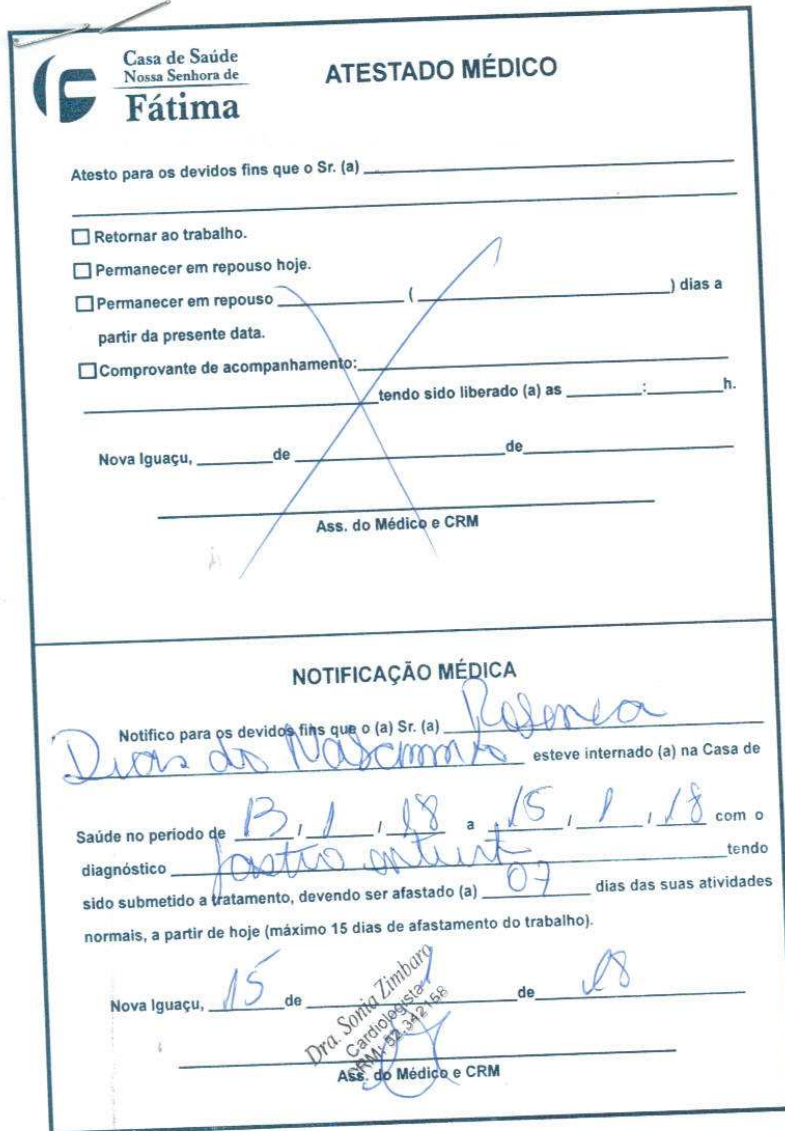 Casa de Saúde
Nossa Senhora de
Fátima
ATESTADO MÉDICO
Atesto para os devidos fins que o Sr. (a)
Retornar ao trabalho.
Permanecer em repouso hoje.
Permanecer em repouso ( ) dias a
partir da presente data.
Comprovante de acompanhamento:
tendo sido liberado (a) as : h.
Nova Iguaçu, de de
Ass. do Médico e CRM
NOTIFICAÇÃO MÉDICA
Notifico para os devidos fins que o (a) Sr. (a)
Dias do Nascimento esteve internado (a) na Casa de
Saúde no período de 13 / 1 / 18 a 15 / 1 / 18 com o
diagnóstico tendo
sido submetido a tratamento, devendo ser afastado (a) 07 dias das suas atividades
normais, a partir de hoje (máximo 15 dias de afastamento do trabalho).
Nova Iguaçu, 15 de 1 de 18
Dra. Sonia Zimbaro
Cardiologista
CRM: 52.342158
Ass. do Médico e CRM